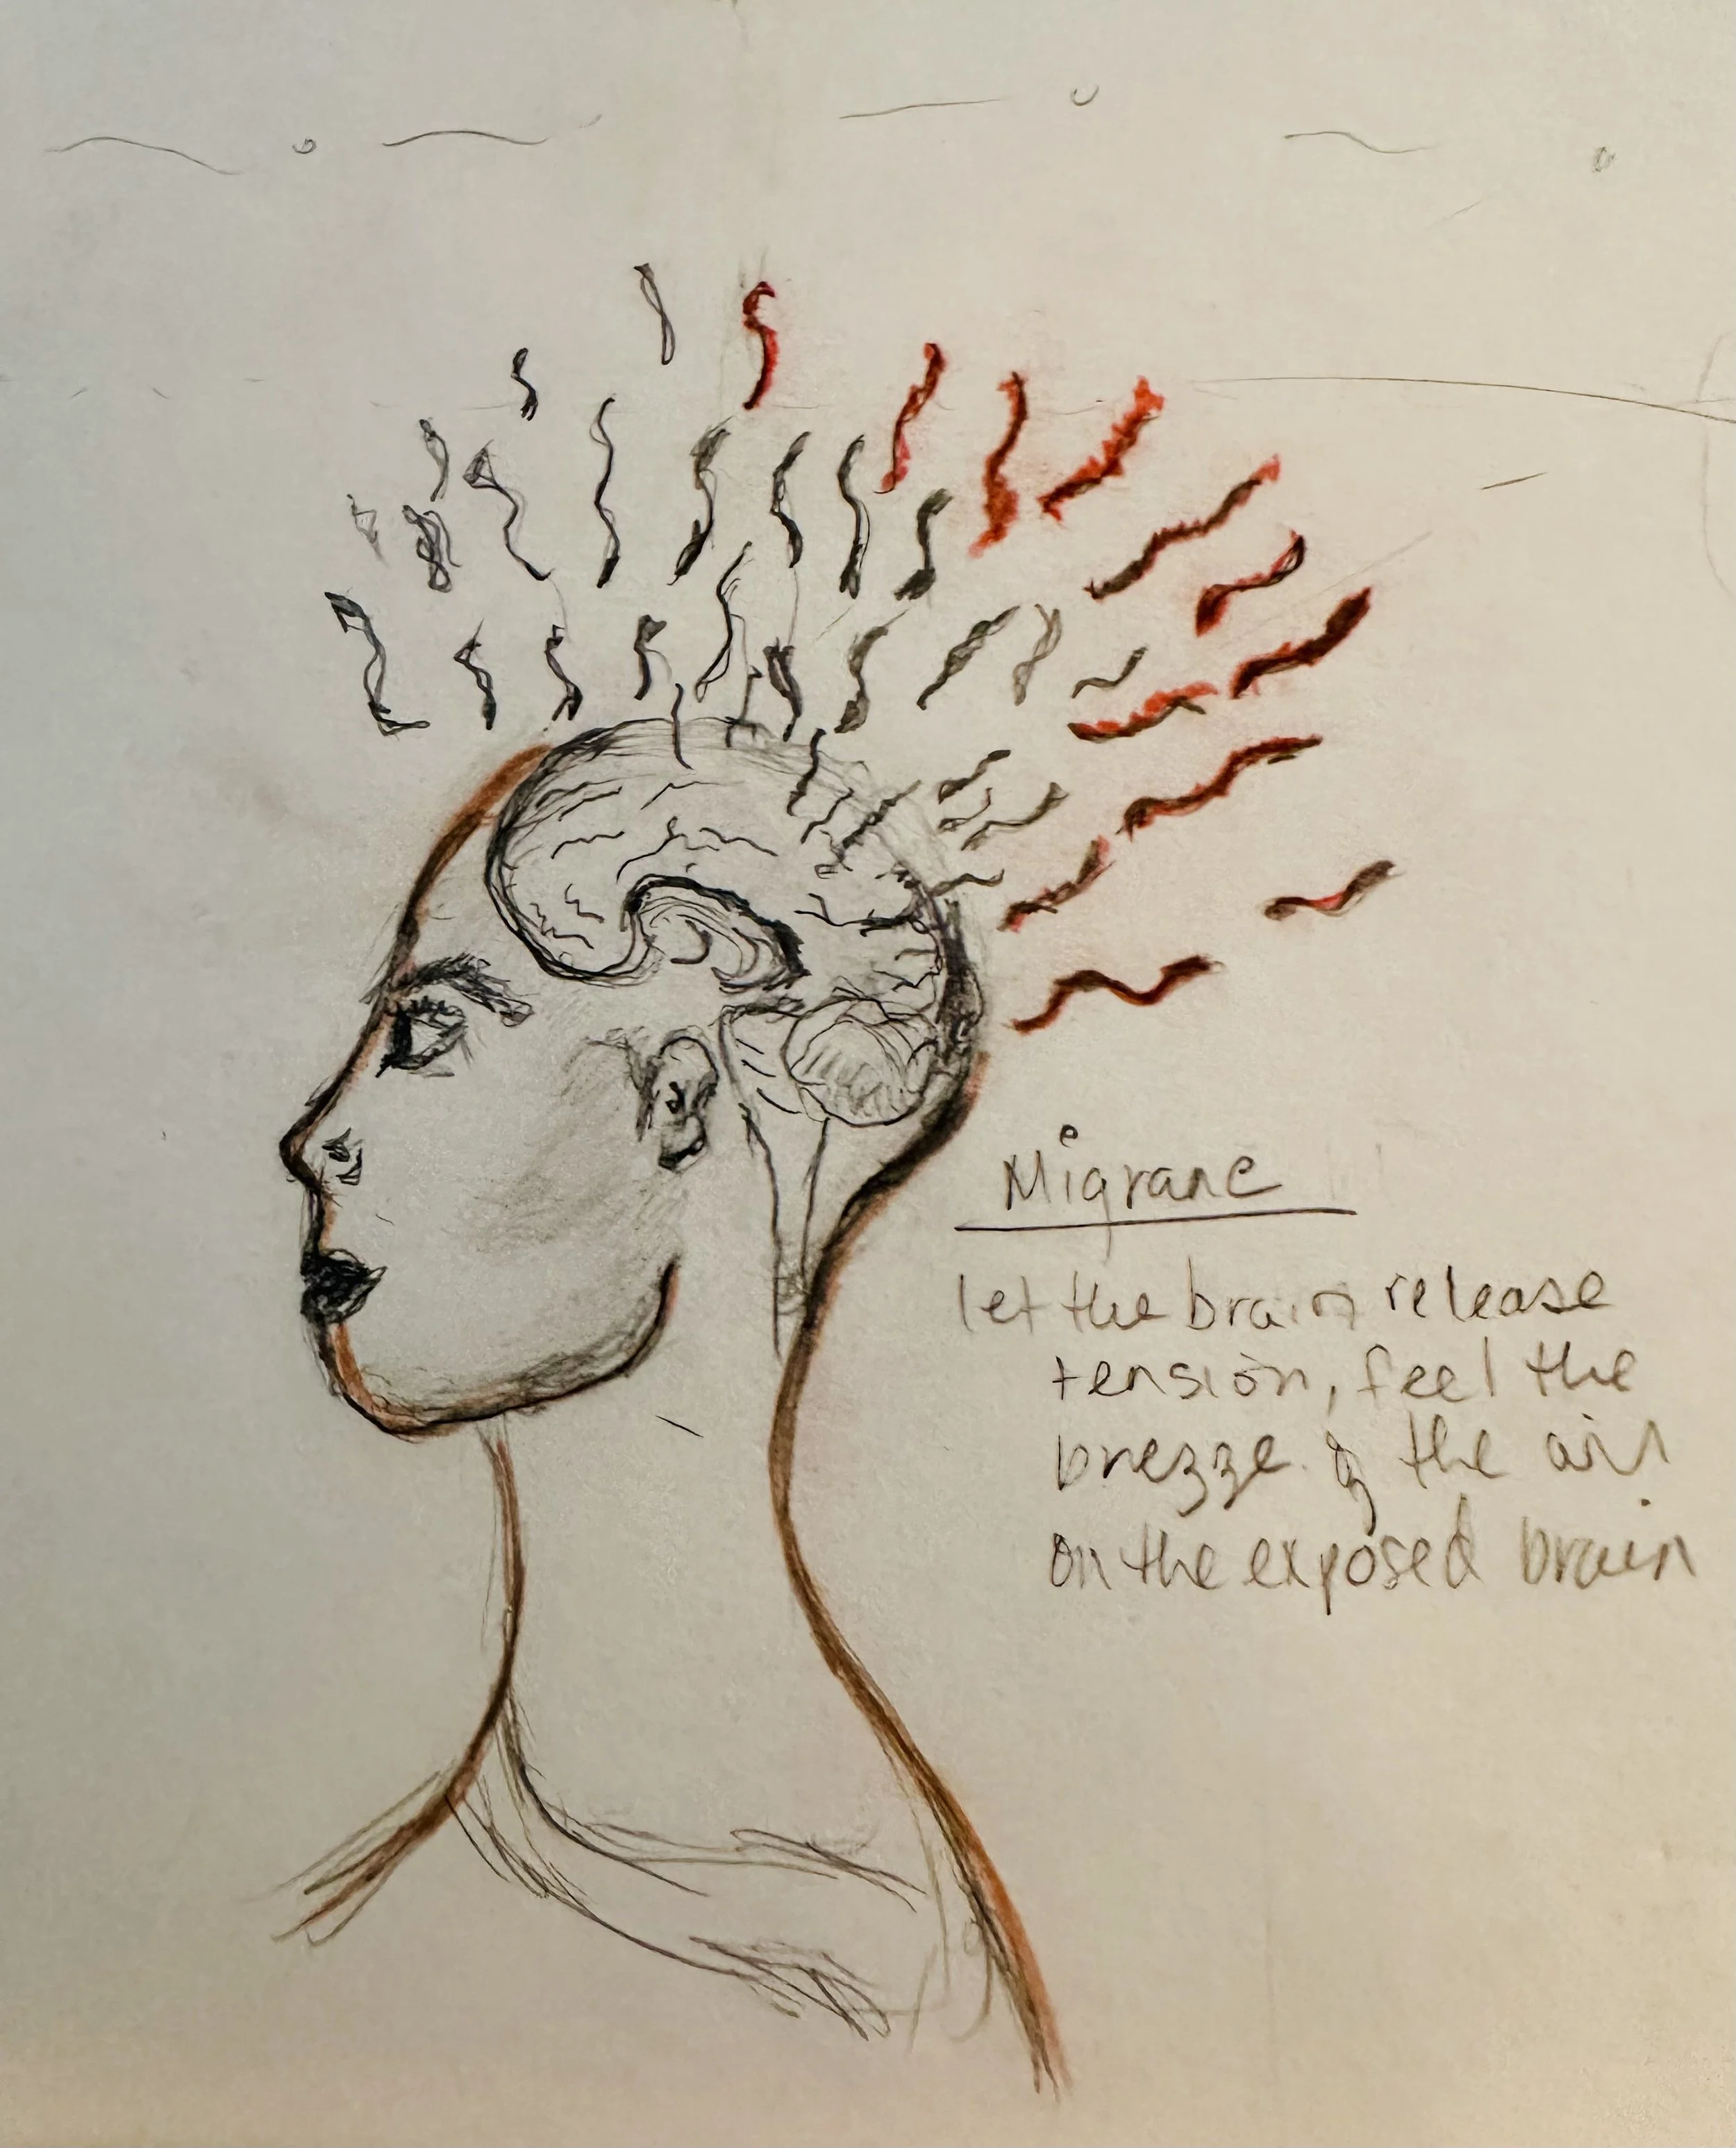 Migrane
let the brain release
tension, feel the
brezze of the air
on the exposed brain